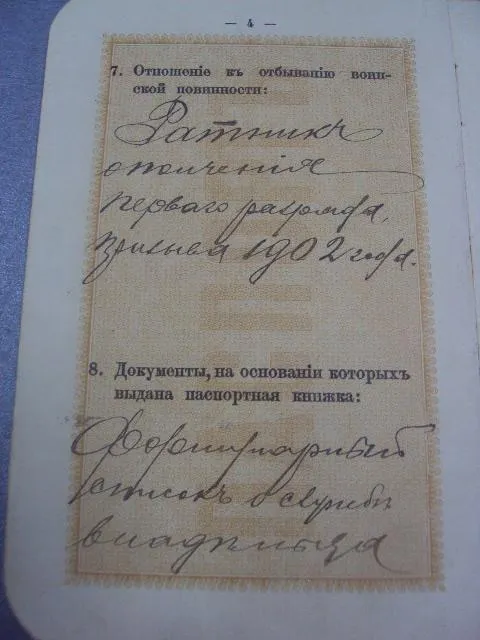 — 4 —
7. Отношеніе къ отбыванію воин-
ской повинности:
Ратникъ
ополченія
перваго разряда,
призыва 1902 года.
8. Документы, на основаніи которыхъ
выдана паспортная книжка:
Формулярный
списокъ о службѣ
владѣльца